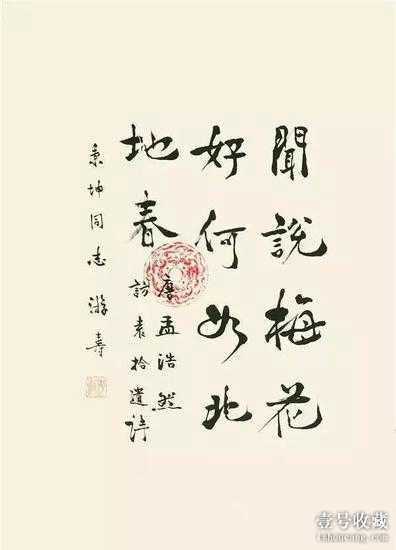 聞說梅花
好何如北
地春
唐孟浩然
訪袁拾遺詩
秉坤同志 游壽
壹号收藏
1shoucang.com